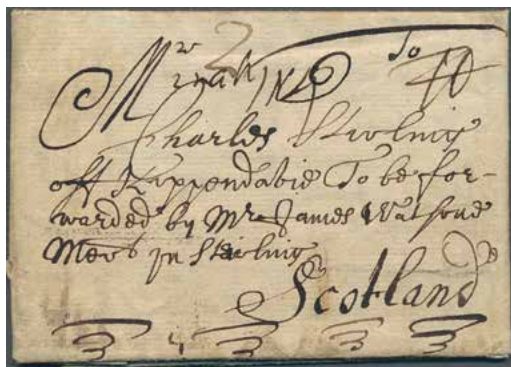 Mr To
Charles Stirling
off Kippendavie To be for-
warded by Mr James Watsone
Mert in Stirling
Scotland